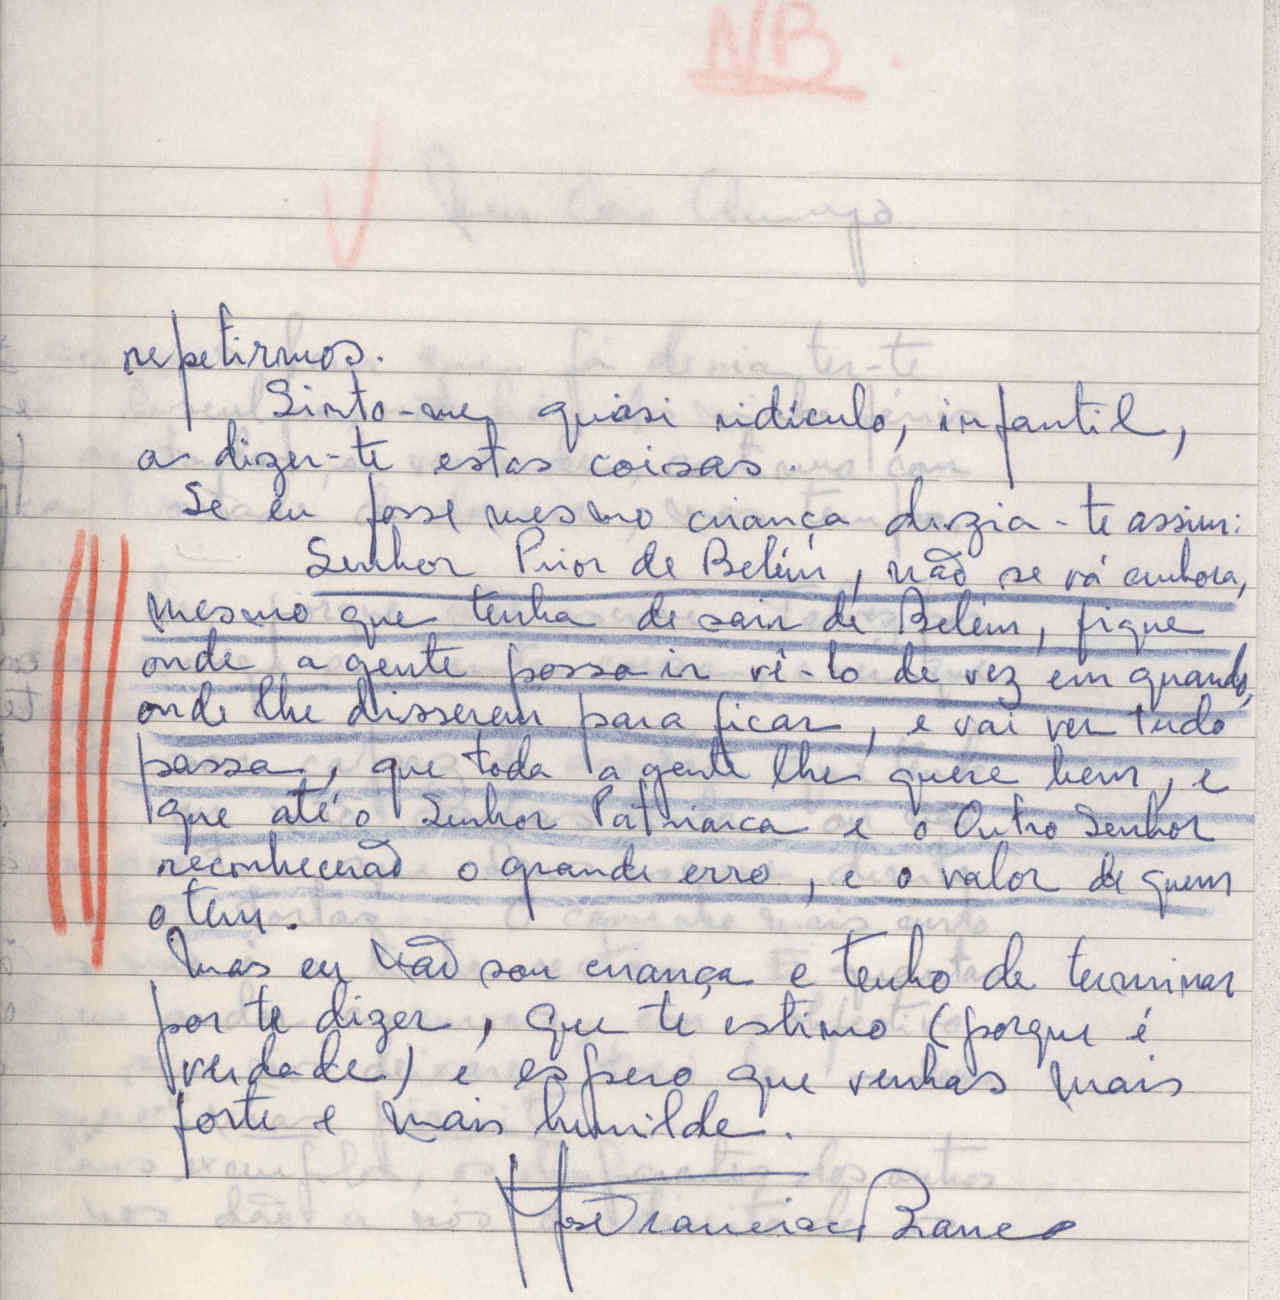 NB.
repetirmos.
Sinto-me quasi ridiculo, infantil,
a dizer-te estas coisas.
Se eu fosse mesmo criança dizia-te assim:
Senhor Prior de Belém, não se vá embora,
mesmo que tenha de sair de Belém, fique
onde a gente possa ir vê-lo de vez em quando,
onde lhe disserem para ficar, e vai ver tudo
passa, que toda a gente lhe quere bem, e
que até o Senhor Patriarca e o Outro Senhor
reconhecerão o grande erro, e o valor de quem
o tem.
Mas eu não sou criança e tenho de terminar
por te dizer, que te estimo (porque é
verdade) e espero que venhas mais
forte e mais humilde.
José Francisco Branco